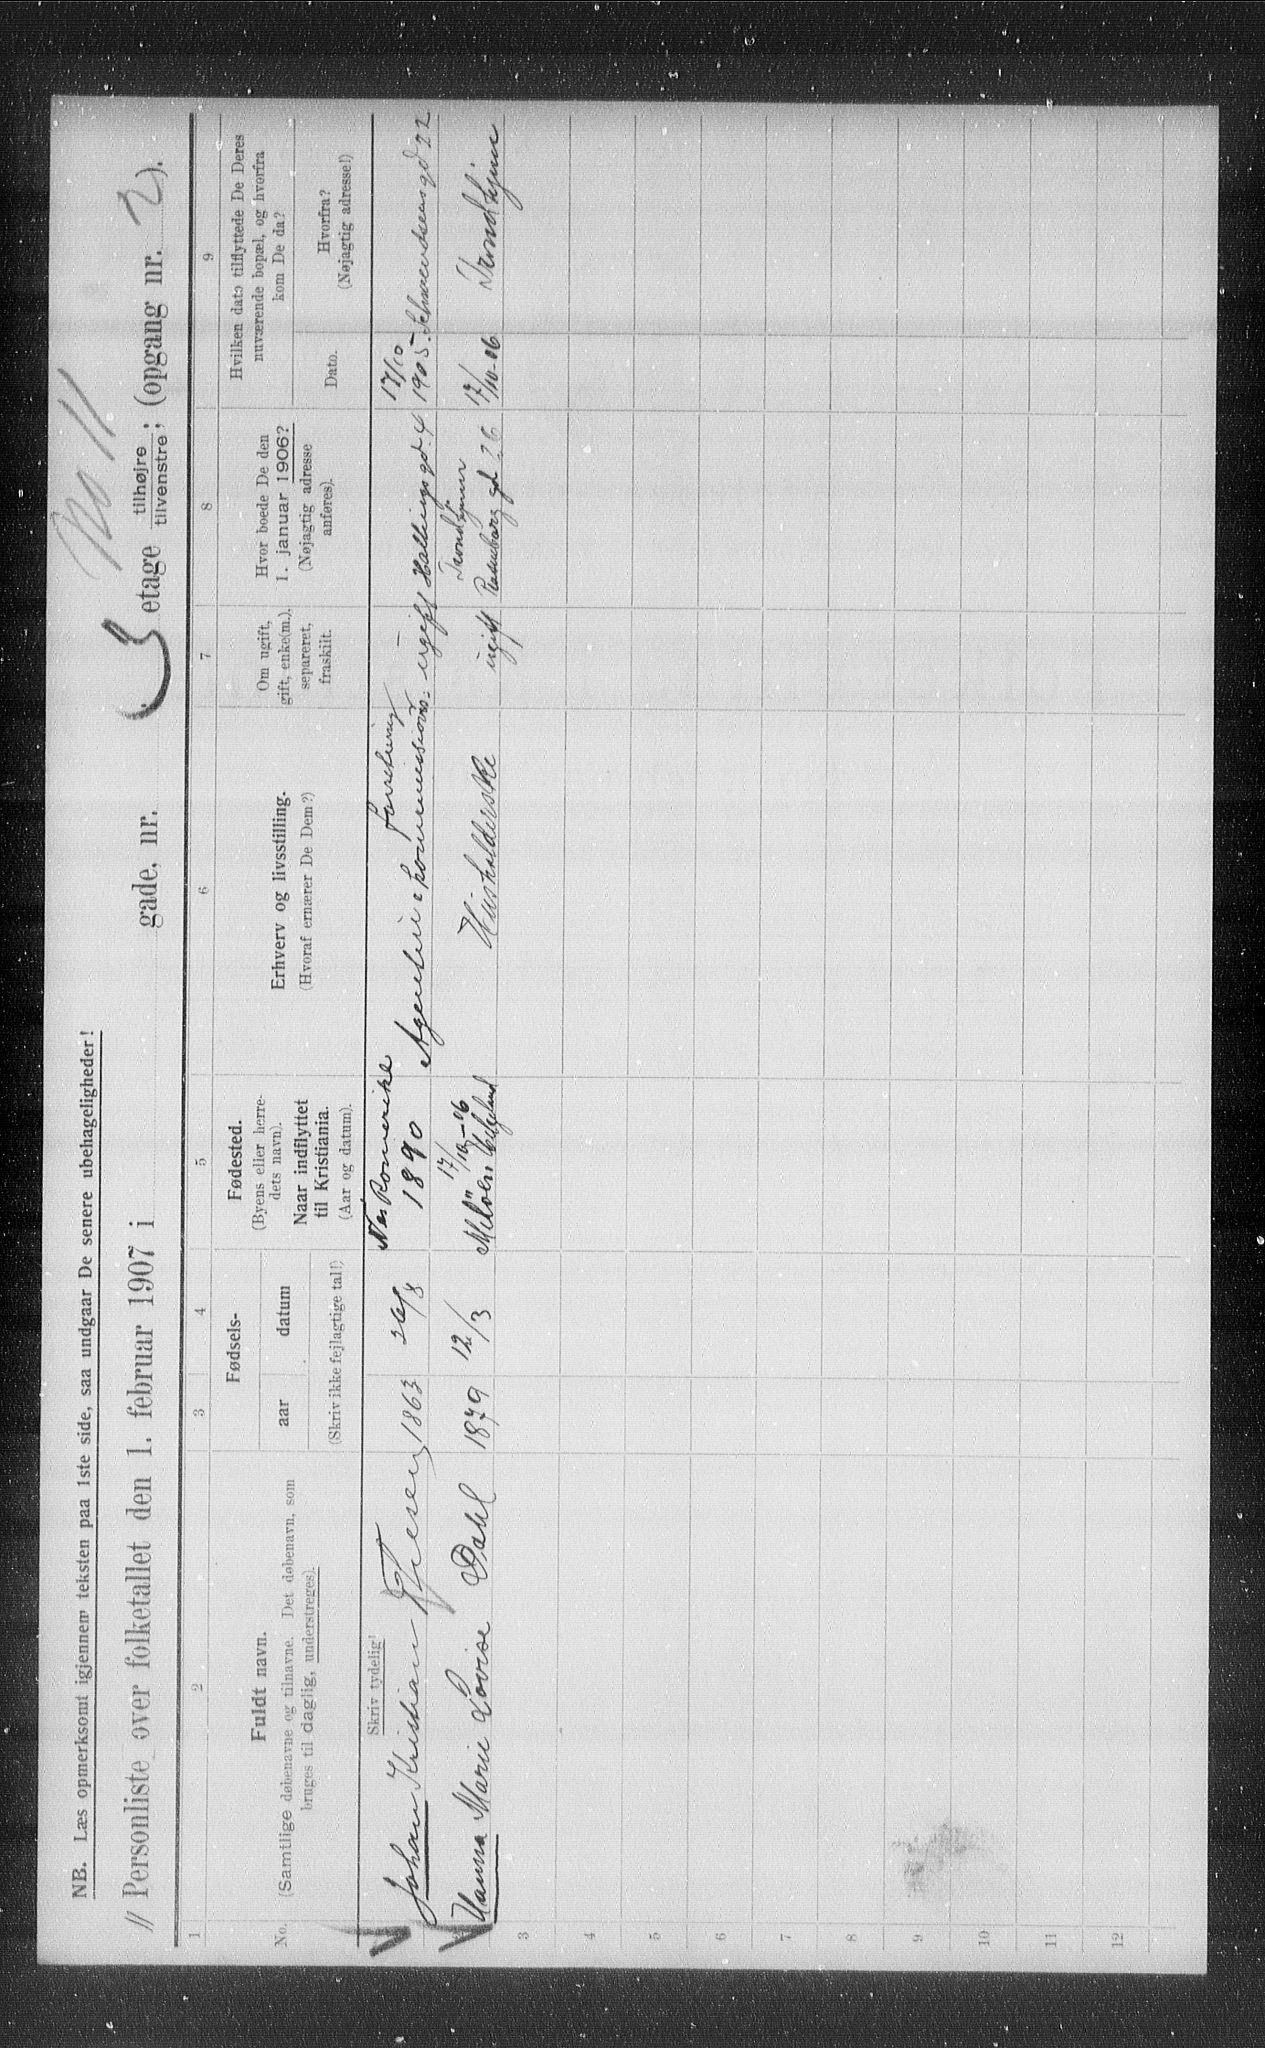 NB. Læs opmerksomt igjennem teksten paa 1ste side, saa undgaar De senere ubehageligheder!
No 11
// Personliste over folketallet den 1. februar 1907 i gade, nr. 3 etage tilhøjre tilvenstre; (opgang nr. 2).
1 2 3 4 5 6 7 8 9
No.
Fuldt navn.
(Samtlige døbenavne og tilnavne. Det døbenavn, som
bruges til daglig, understreges).
Fødsels-
aar datum
(Skriv ikke fejlagtige tal!)
Fødested.
(Byens eller herre-
dets navn).
Naar indflyttet
til Kristiania.
(Aar og datum).
Erhverv og livsstilling.
(Hvoraf ernærer De Dem?)
Om ugift,
gift, enke(m.),
separeret,
fraskilt.
Hvor boede De den
1. januar 1906?
(Nøjagtig adresse
anføres).
Hvilken dato tilflyttede De Deres
nuværende bopæl, og hvorfra
kom De da?
Dato.
Hvorfra?
(Nøjagtig adresse!)
Skriv tydelig!
Nes Romerike forretning 17/10
Johan Kristian 1863 26/8 1890 Agentur & kommissions ugift Hallingsgd. 4 1905. Schwendsensgd 22
17/10-06 Trondhjem
Hanna Marie Lovise Dahl 1879 12/3 Meløen Helgeland Husholderske ugift Rosenborg gd 26 17/10-06 Trondhjem
3
4
5
6
7
8
9
10
11
12